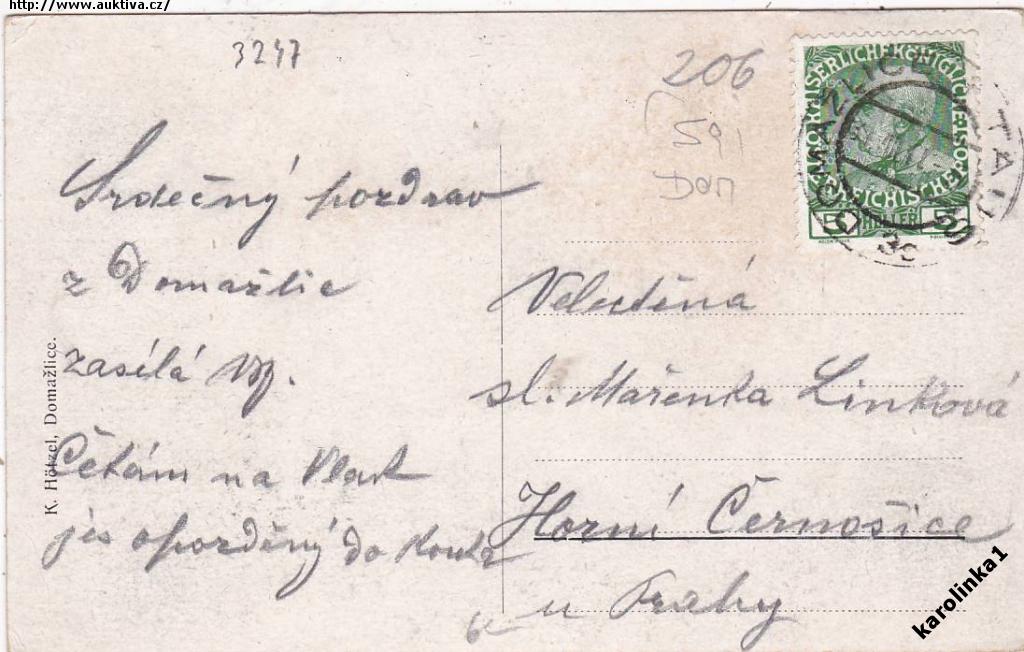 http://www.auktiva.cz/
3247
206
59
Dom
KAISERLICHE KÖNIGLICHE
5 HELLER 5
DOMAŽLICE TAUS
Srdečný pozdrav
z Domažlic
zasílá
Čekám na
opozděný do
K. Hötzel, Domažlice.
Velectěná
sl. Mařenka Linková
Horní Černošice
u Prahy
karolinka1